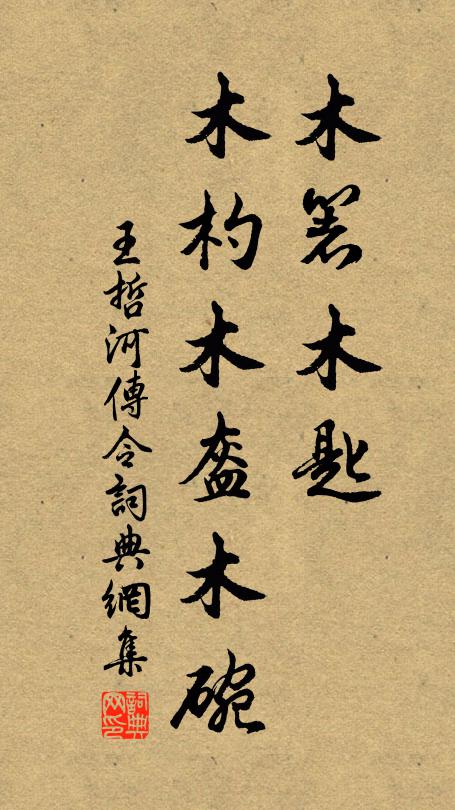 木箸木匙
木杓木盔木碗
王哲河傳令詞典網集
詞典
网印